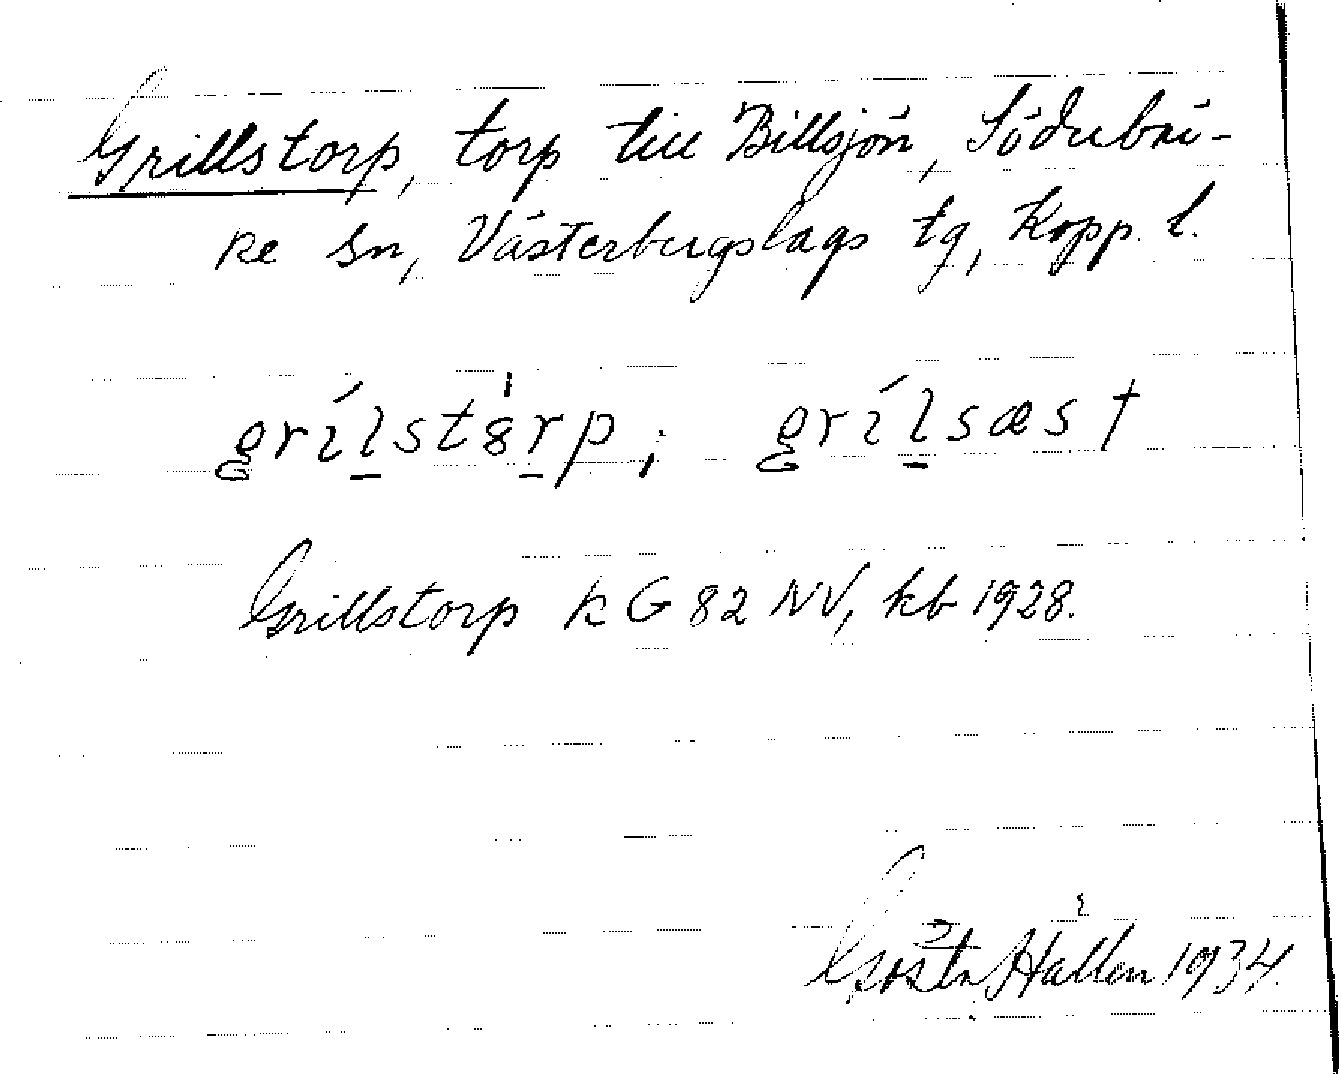 Grillstorp, torp till Billsjön, Söderbär-
ke sn, Västerbergslags tg, Kopp. l.
grílst8̍rp; grílsæst †
Grillstorp k G 82 NV, kb 1928.
Gösta Hallén 1934.